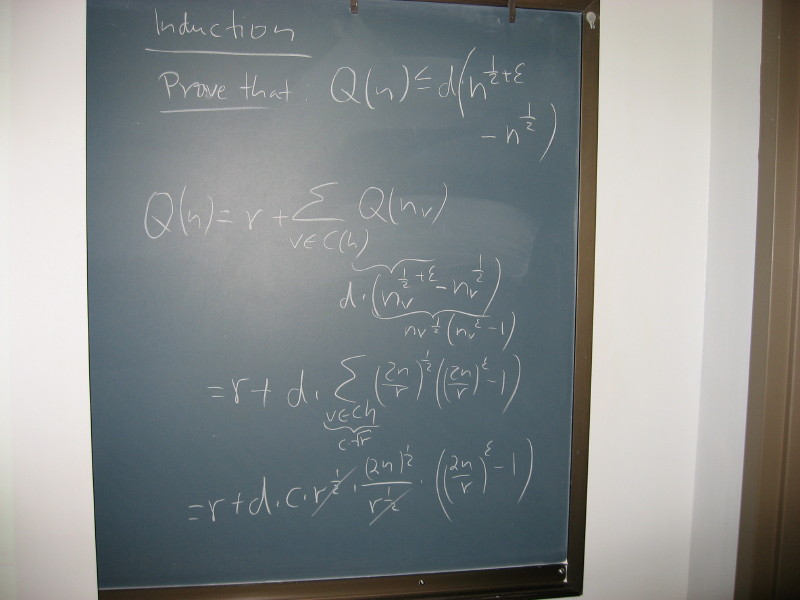 Induction
Prove that: Q(n) ≤ d(n^{1/2+ε}
- n^{1/2})
Q(n) = r + Σ_{v∈C(h)} Q(n_v)
d·(n_v^{1/2+ε} - n_v^{1/2})
n_v^{1/2}(n_v^ε - 1)
= r + d · Σ_{v∈C(h)} (2n/r)^{1/2} ((2n/r)^ε - 1)
c√r
= r + d · c · r^{1/2} · (2n)^{1/2}/r^{1/2} · ((2n/r)^ε - 1)